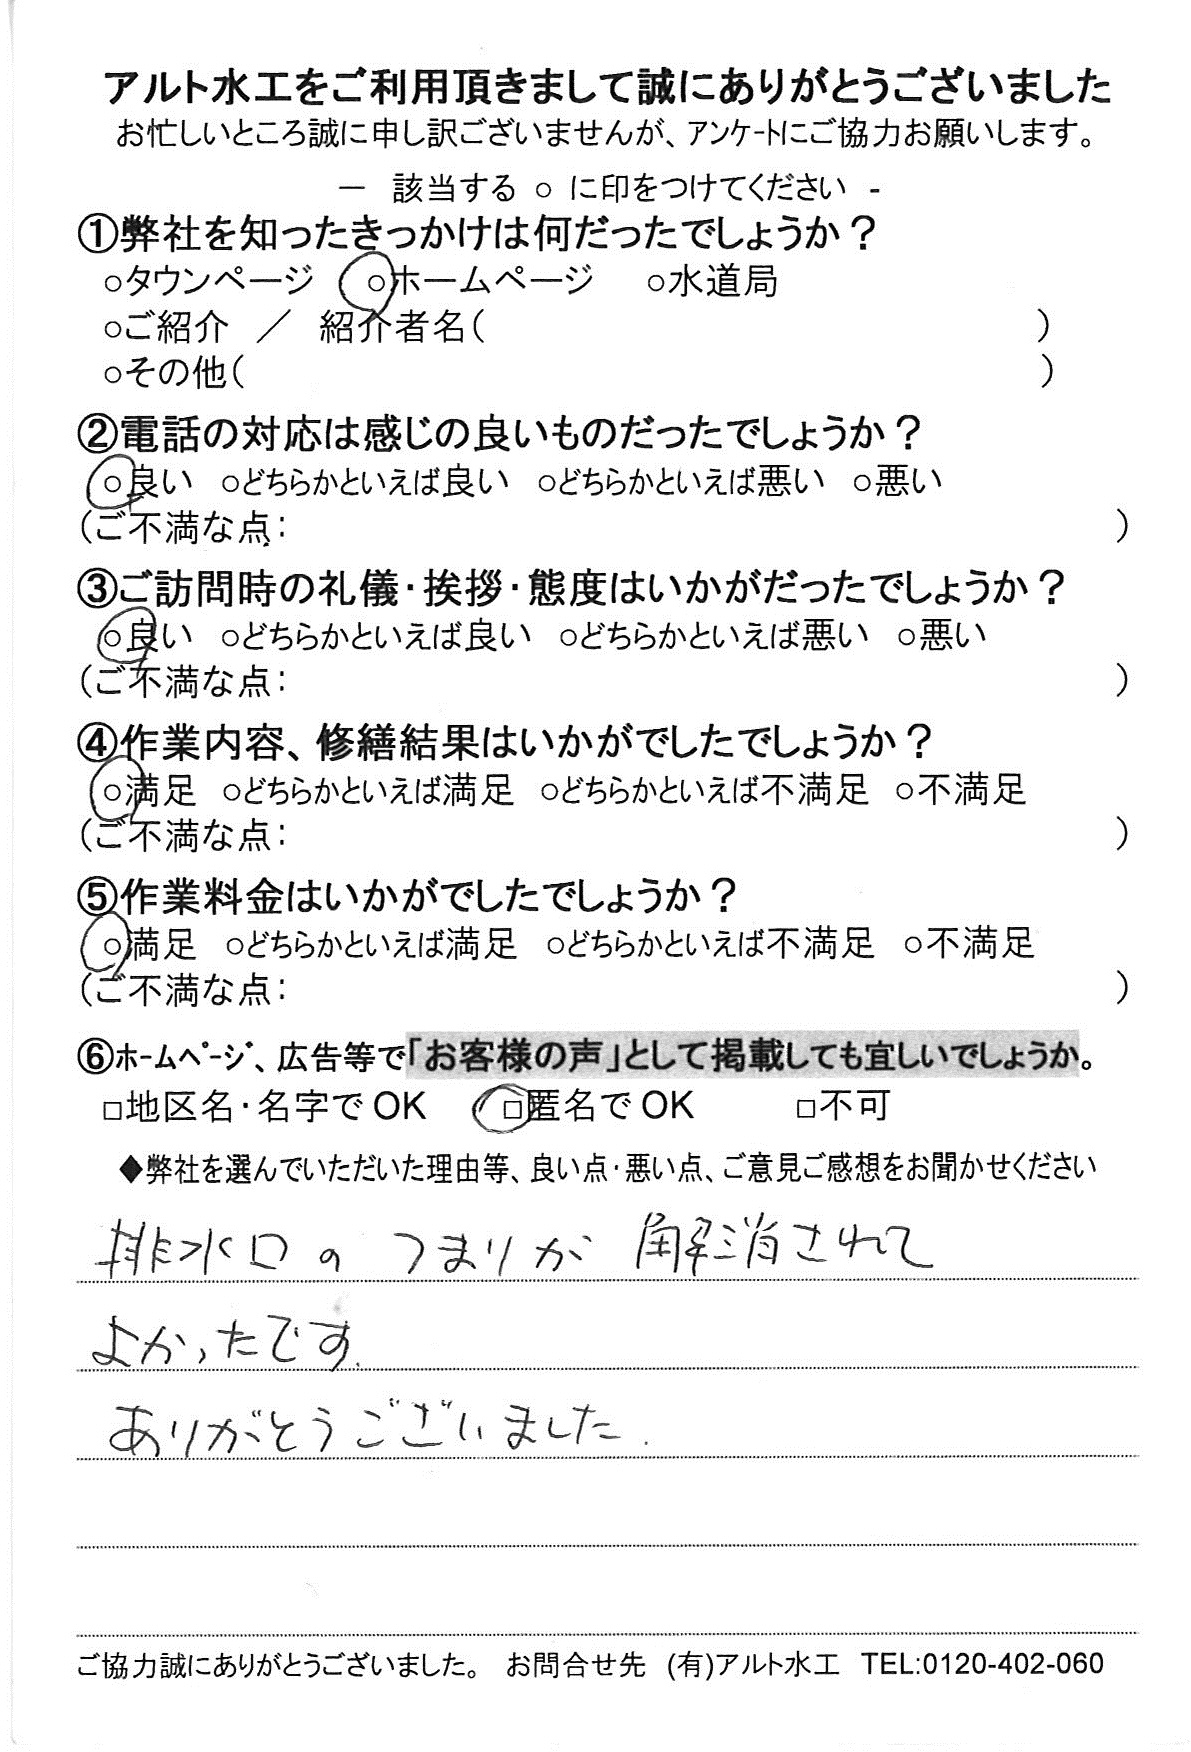 アルト水工をご利用頂きまして誠にありがとうございました
お忙しいところ誠に申し訳ございませんが、アンケートにご協力お願いします。
― 該当する ○ に印をつけてください -
①弊社を知ったきっかけは何だったでしょうか？
○タウンページ ○ホームページ ○水道局
○ご紹介 ／ 紹介者名( )
○その他( )
②電話の対応は感じの良いものだったでしょうか？
○良い ○どちらかといえば良い ○どちらかといえば悪い ○悪い
(ご不満な点： )
③ご訪問時の礼儀・挨拶・態度はいかがだったでしょうか？
○良い ○どちらかといえば良い ○どちらかといえば悪い ○悪い
(ご不満な点： )
④作業内容、修繕結果はいかがでしたでしょうか？
○満足 ○どちらかといえば満足 ○どちらかといえば不満足 ○不満足
(ご不満な点： )
⑤作業料金はいかがでしたでしょうか？
○満足 ○どちらかといえば満足 ○どちらかといえば不満足 ○不満足
(ご不満な点： )
⑥ﾎｰﾑﾍﾟｰｼﾞ、広告等で「お客様の声」として掲載しても宜しいでしょうか。
□地区名・名字でOK □匿名でOK □不可
◆弊社を選んでいただいた理由等、良い点・悪い点、ご意見ご感想をお聞かせください
排水口の つまりが 解消されて
よかったです.
ありがとうございました.
ご協力誠にありがとうございました。 お問合せ先 (有)アルト水工 TEL:0120-402-060